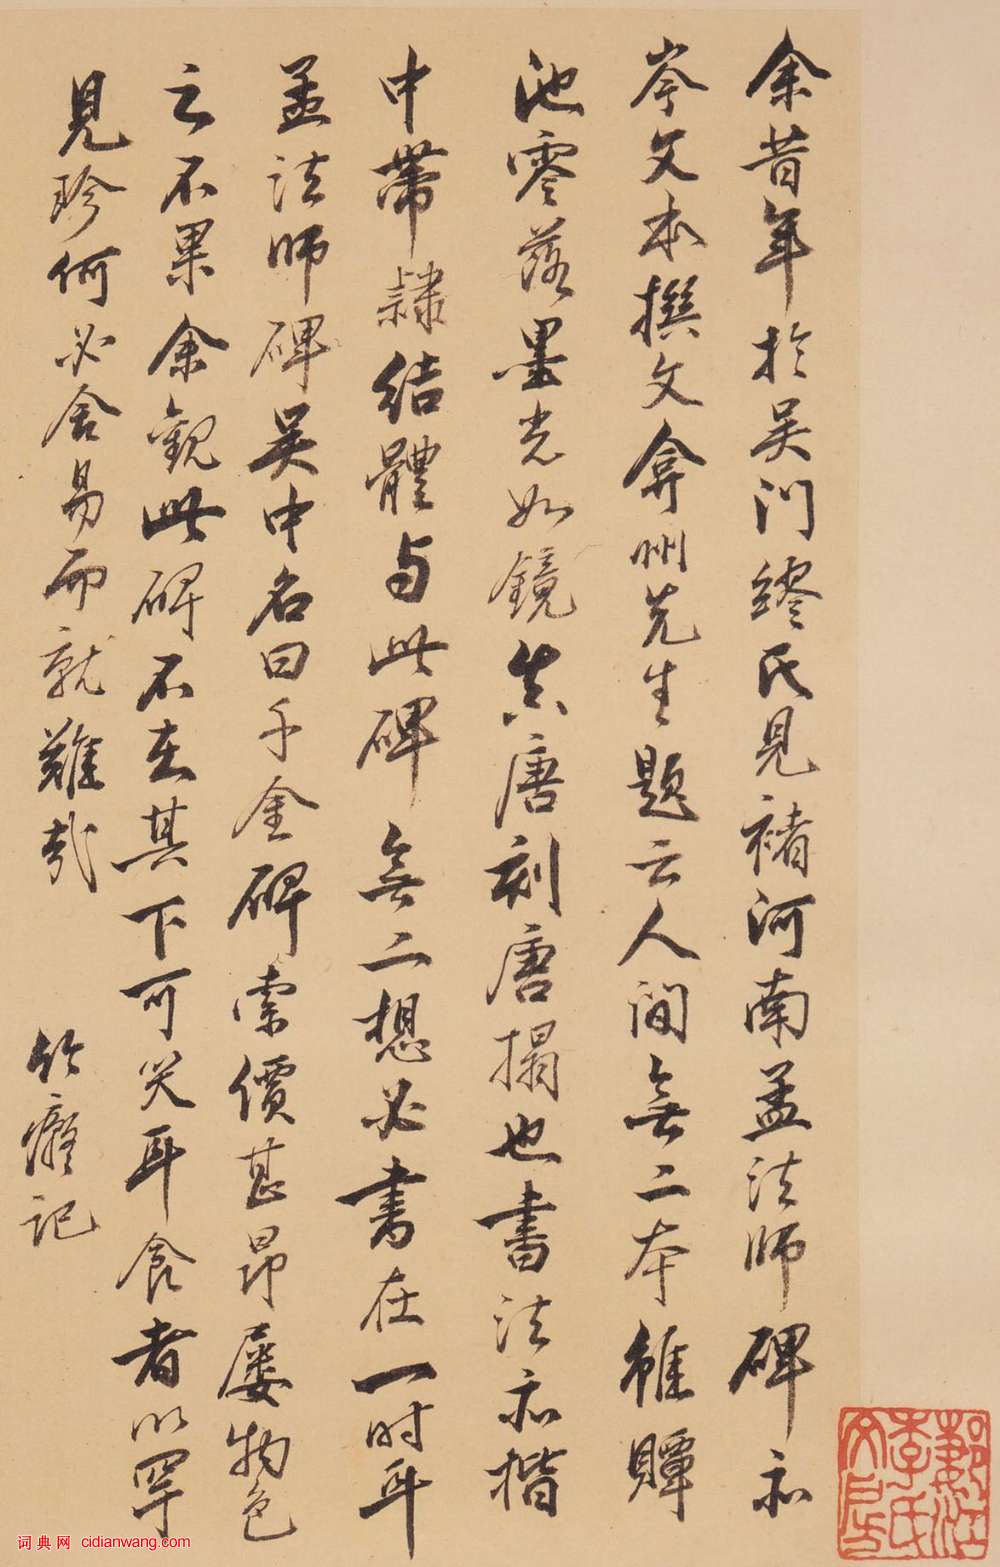 余昔年於吴门繆氏見褚河南孟法師碑亦
岑文本撰文弇州先生題云人间無二本雖贉
池零落墨光如鏡真唐刻唐搨也書法亦楷
中帶隸結體与此碑無二想必書在一时耳
孟法師碑吴中名曰千金碑索價甚昂屡物色
之不果余觀此碑不在其下可笑耳食者以罕
見珍何必舍易而就難哉
竹癡记
词典网 cidianwang.com